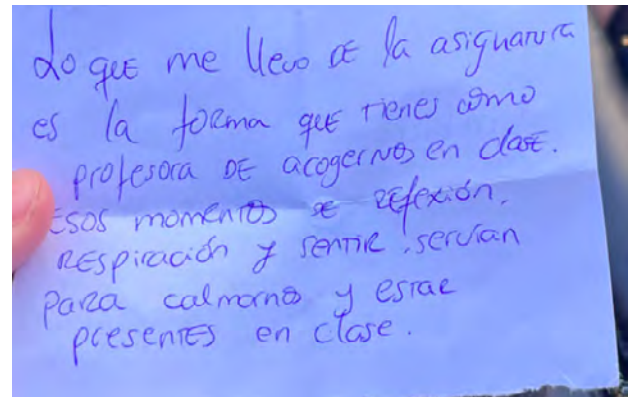 Lo que me llevo de la asignatura
es la forma que tienes como
profesora de acogernos en clase.
Esos momentos de reflexión,
respiración y sentir, servían
para calmarnos y estar
presentes en clase.